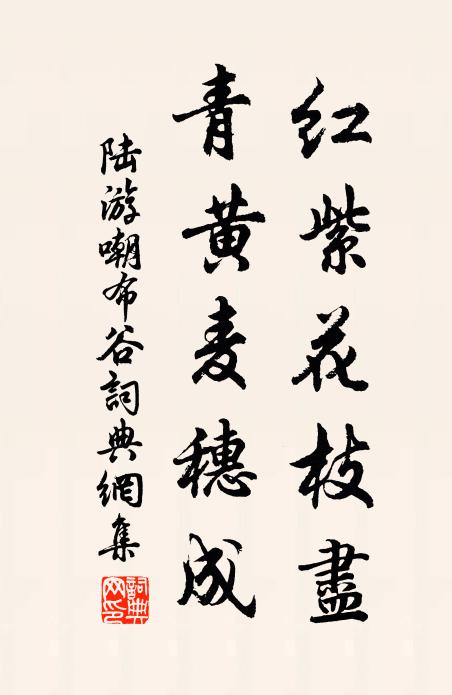 红紫花枝盡
青黄麦穗成
陆游嘲布谷詞典網集
詞典网印